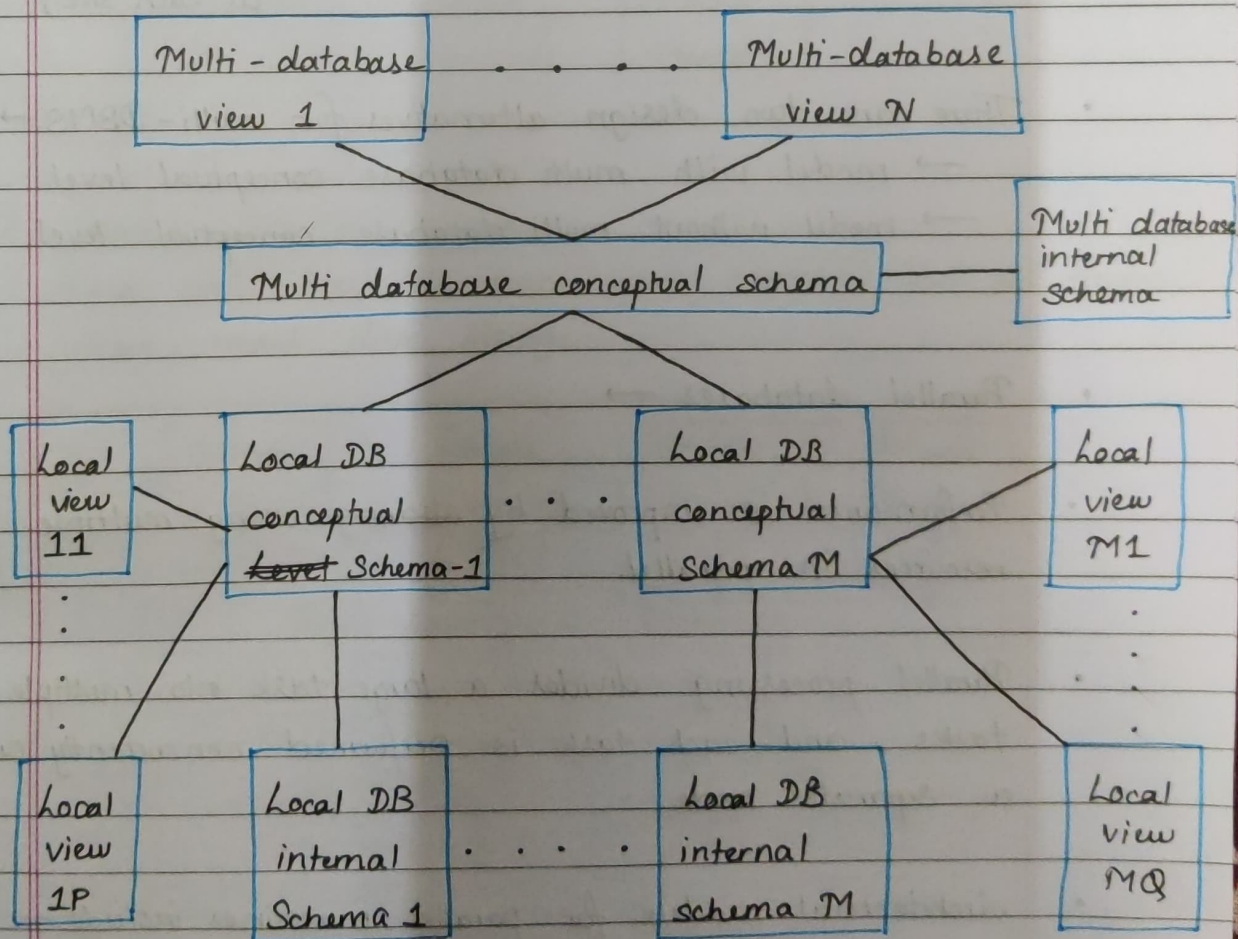 Multi - database
view 1
. . . .
Multi-database
view N
Multi database
internal
schema
Multi database conceptual schema
Local
view
11
Local DB
conceptual
Level Schema-1
. . .
Local DB
conceptual
Schema M
Local
view
M1
Local
view
1P
Local DB
internal
Schema 1
. . . .
Local DB
internal
schema M
Local
view
MQ